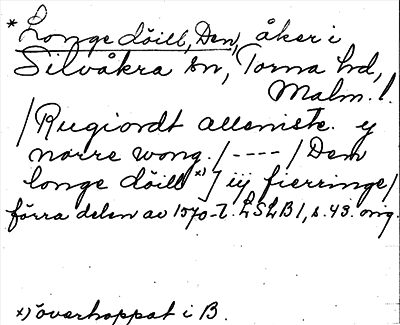 * Longe döill, Den, åker i
Silvåkra sn, Torna hd,
Malm. l.
/Rugiordt allemiste. y
nørre wong./----/Den
longe döill x)/ iij fierringe/
förra delen av 1570-t. LSLB 1, s. 43. orig.
x) överhoppat i B.